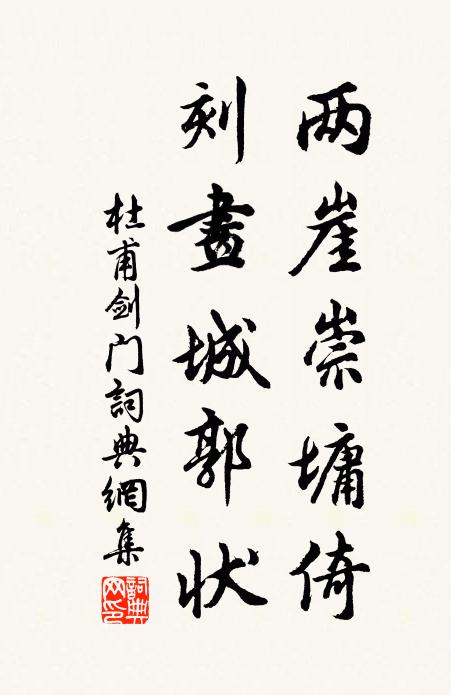 两崖崇墉倚
刻畫城郭状
杜甫剑门詞典網集
詞典网印